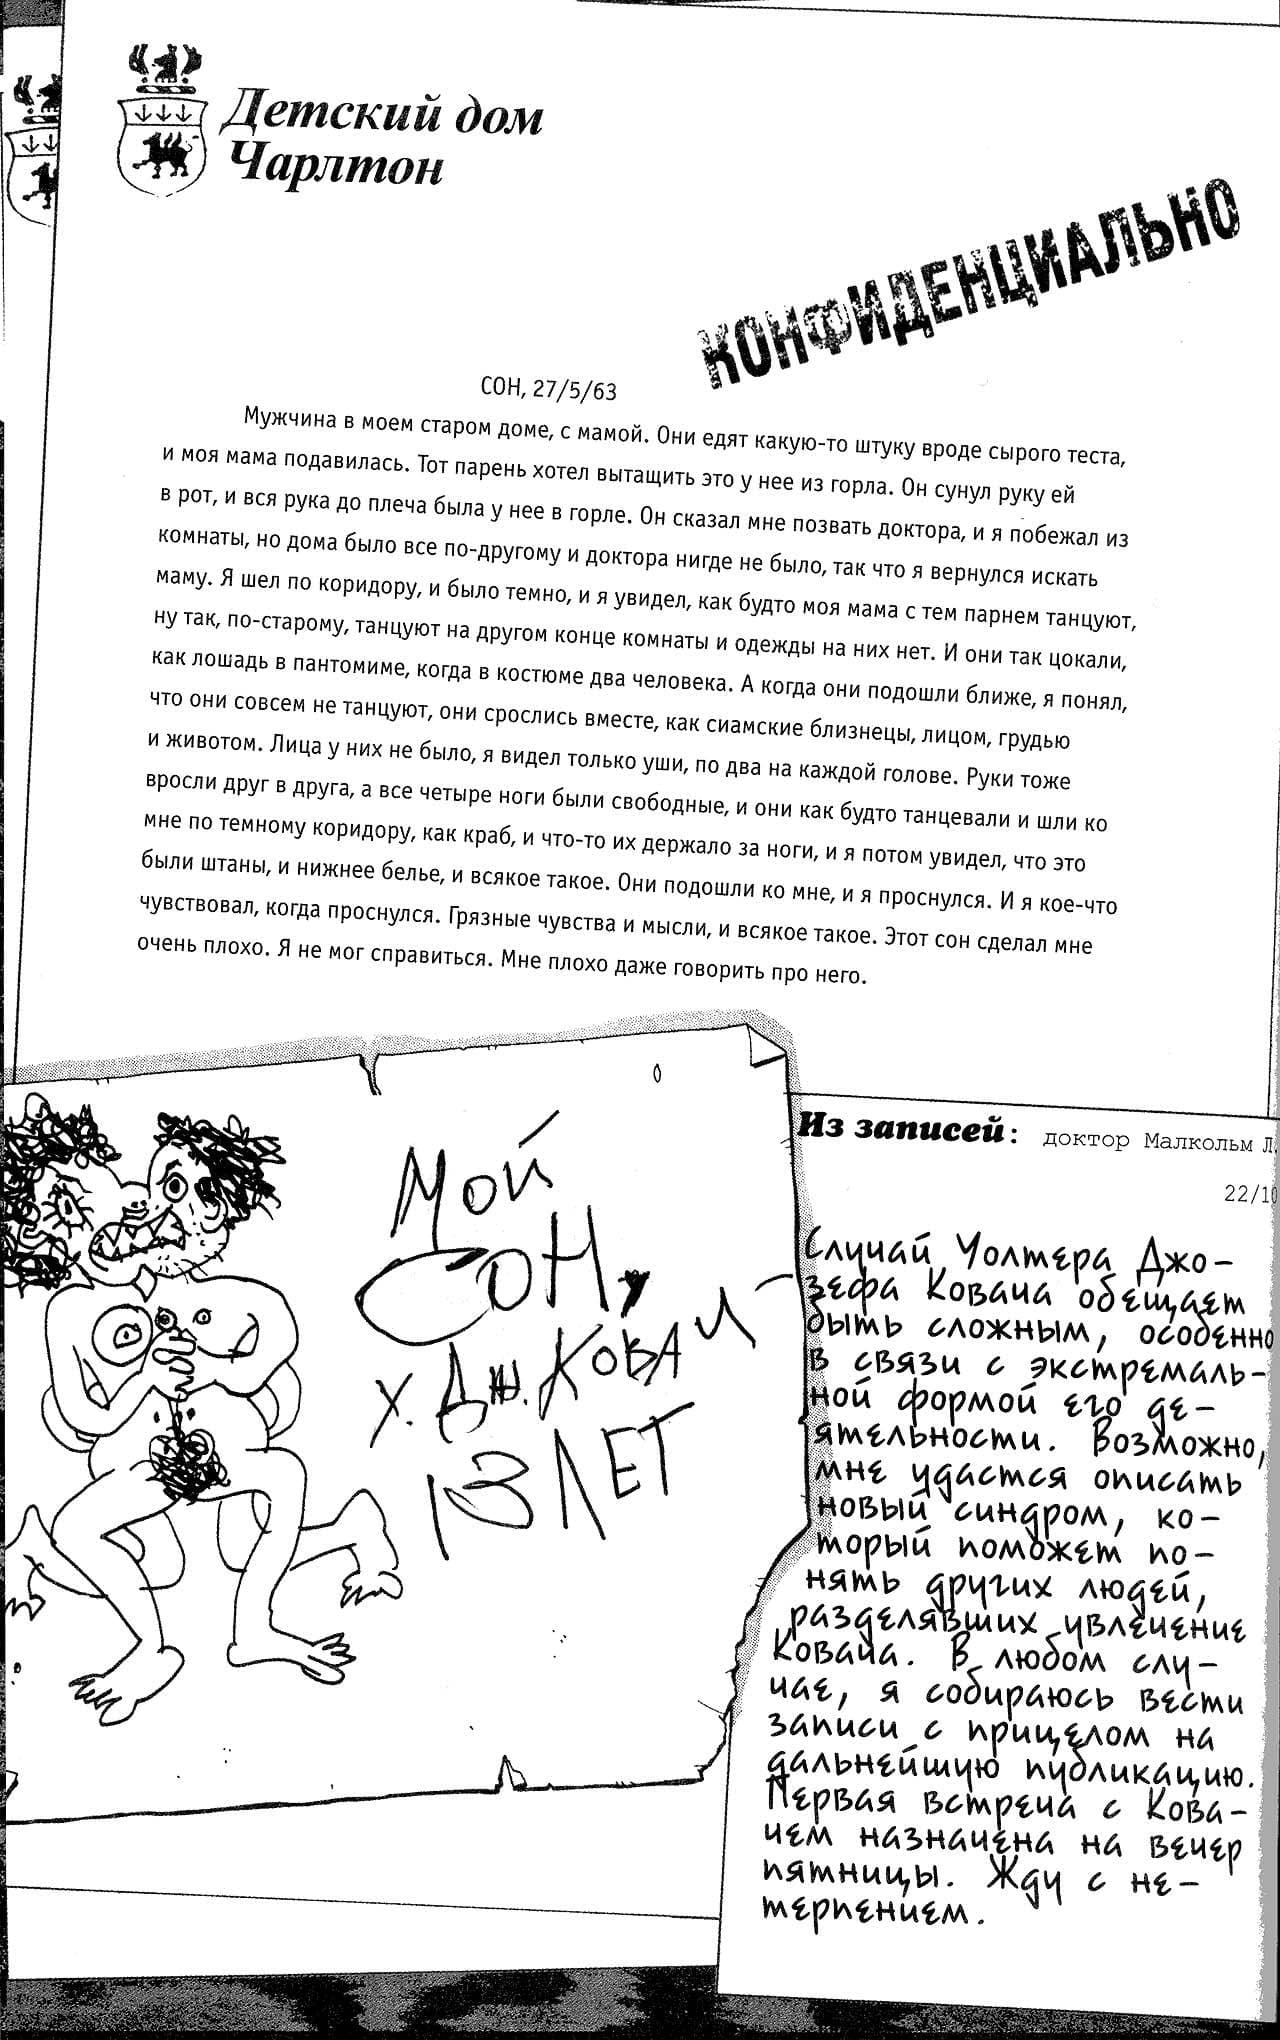 Детский дом
Чарлтон
КОНФИДЕНЦИАЛЬНО
СОН, 27/5/63
Мужчина в моем старом доме, с мамой. Они едят какую-то штуку вроде сырого теста,
и моя мама подавилась. Тот парень хотел вытащить это у нее из горла. Он сунул руку ей
в рот, и вся рука до плеча была у нее в горле. Он сказал мне позвать доктора, и я побежал из
комнаты, но дома было все по-другому и доктора нигде не было, так что я вернулся искать
маму. Я шел по коридору, и было темно, и я увидел, как будто моя мама с тем парнем танцуют,
ну так, по-старому, танцуют на другом конце комнаты и одежды на них нет. И они так цокали,
как лошадь в пантомиме, когда в костюме два человека. А когда они подошли ближе, я понял,
что они совсем не танцуют, они срослись вместе, как сиамские близнецы, лицом, грудью
и животом. Лица у них не было, я видел только уши, по два на каждой голове. Руки тоже
вросли друг в друга, а все четыре ноги были свободные, и они как будто танцевали и шли ко
мне по темному коридору, как краб, и что-то их держало за ноги, и я потом увидел, что это
были штаны, и нижнее белье, и всякое такое. Они подошли ко мне, и я проснулся. И я кое-что
чувствовал, когда проснулся. Грязные чувства и мысли, и всякое такое. Этот сон сделал мне
очень плохо. Я не мог справиться. Мне плохо даже говорить про него.
Мой
СОН,
Х. Дж. КОВАЧ
13 ЛЕТ
Из записей: доктор Малкольм Л.
22/10
Случай Уолтера Джо-
зефа Ковача обещает
быть сложным, особенно
в связи с экстремаль-
ной формой его де-
ятельности. Возможно,
мне удастся описать
новый синдром, ко-
торый поможет по-
нять других людей,
разделявших увлечение
Ковача. В любом слу-
чае, я собираюсь вести
записи с прицелом на
дальнейшую публикацию.
Первая встреча с Кова-
чем назначена на вечер
пятницы. Жду с не-
терпением.